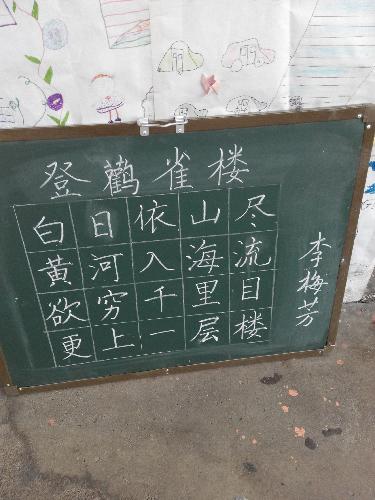 登鹳雀楼
白日依山尽
黄河入海流
欲穷千里目
更上一层楼
李梅芳